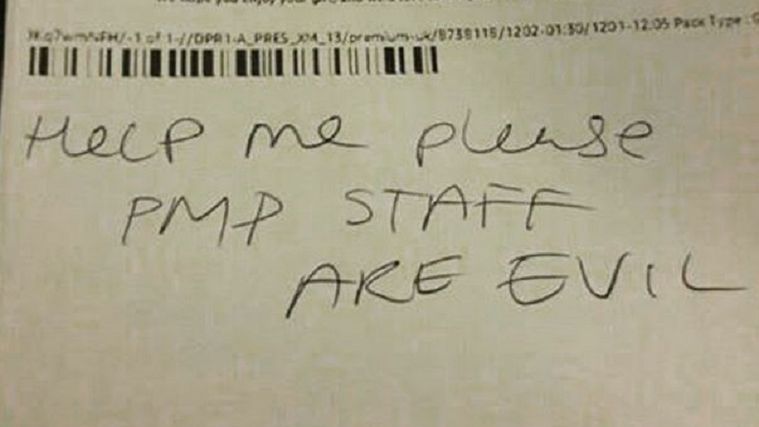 We hope you enjoy your gift
/-1 of 1-//DPR1-A_PRES_XM_13/premium-uk/8738118/1202-01:30/1201-12:05 Pack Type :
Help me please
PMP STAFF
ARE EVIL